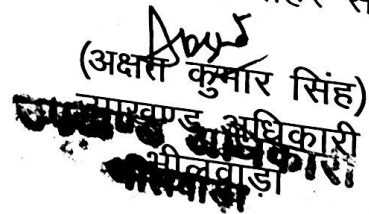 (अक्षत कुमार सिंह)
उपखण्ड अधिकारी
भीलवाड़ा
उपखण्ड अधिकारी
भीलवाड़ा